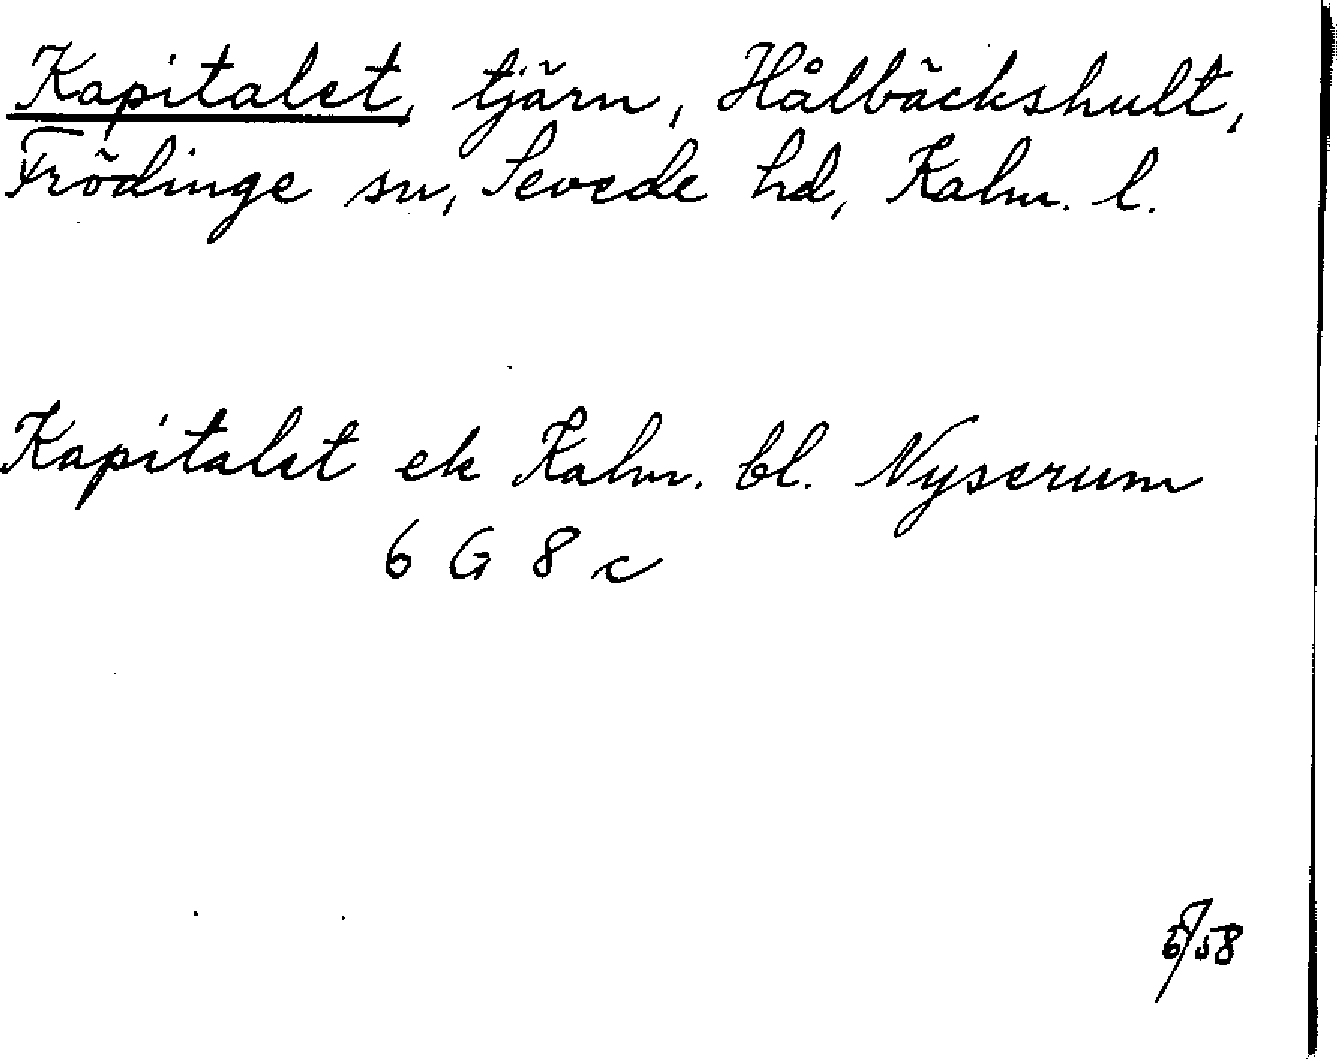 Kapitalet, tjärn, Hålbäckshult,
Frödinge sn, Sevede hd, Kalm. l.
Kapitalet ek Kalm. bl. Nyserum
6 G 8 c